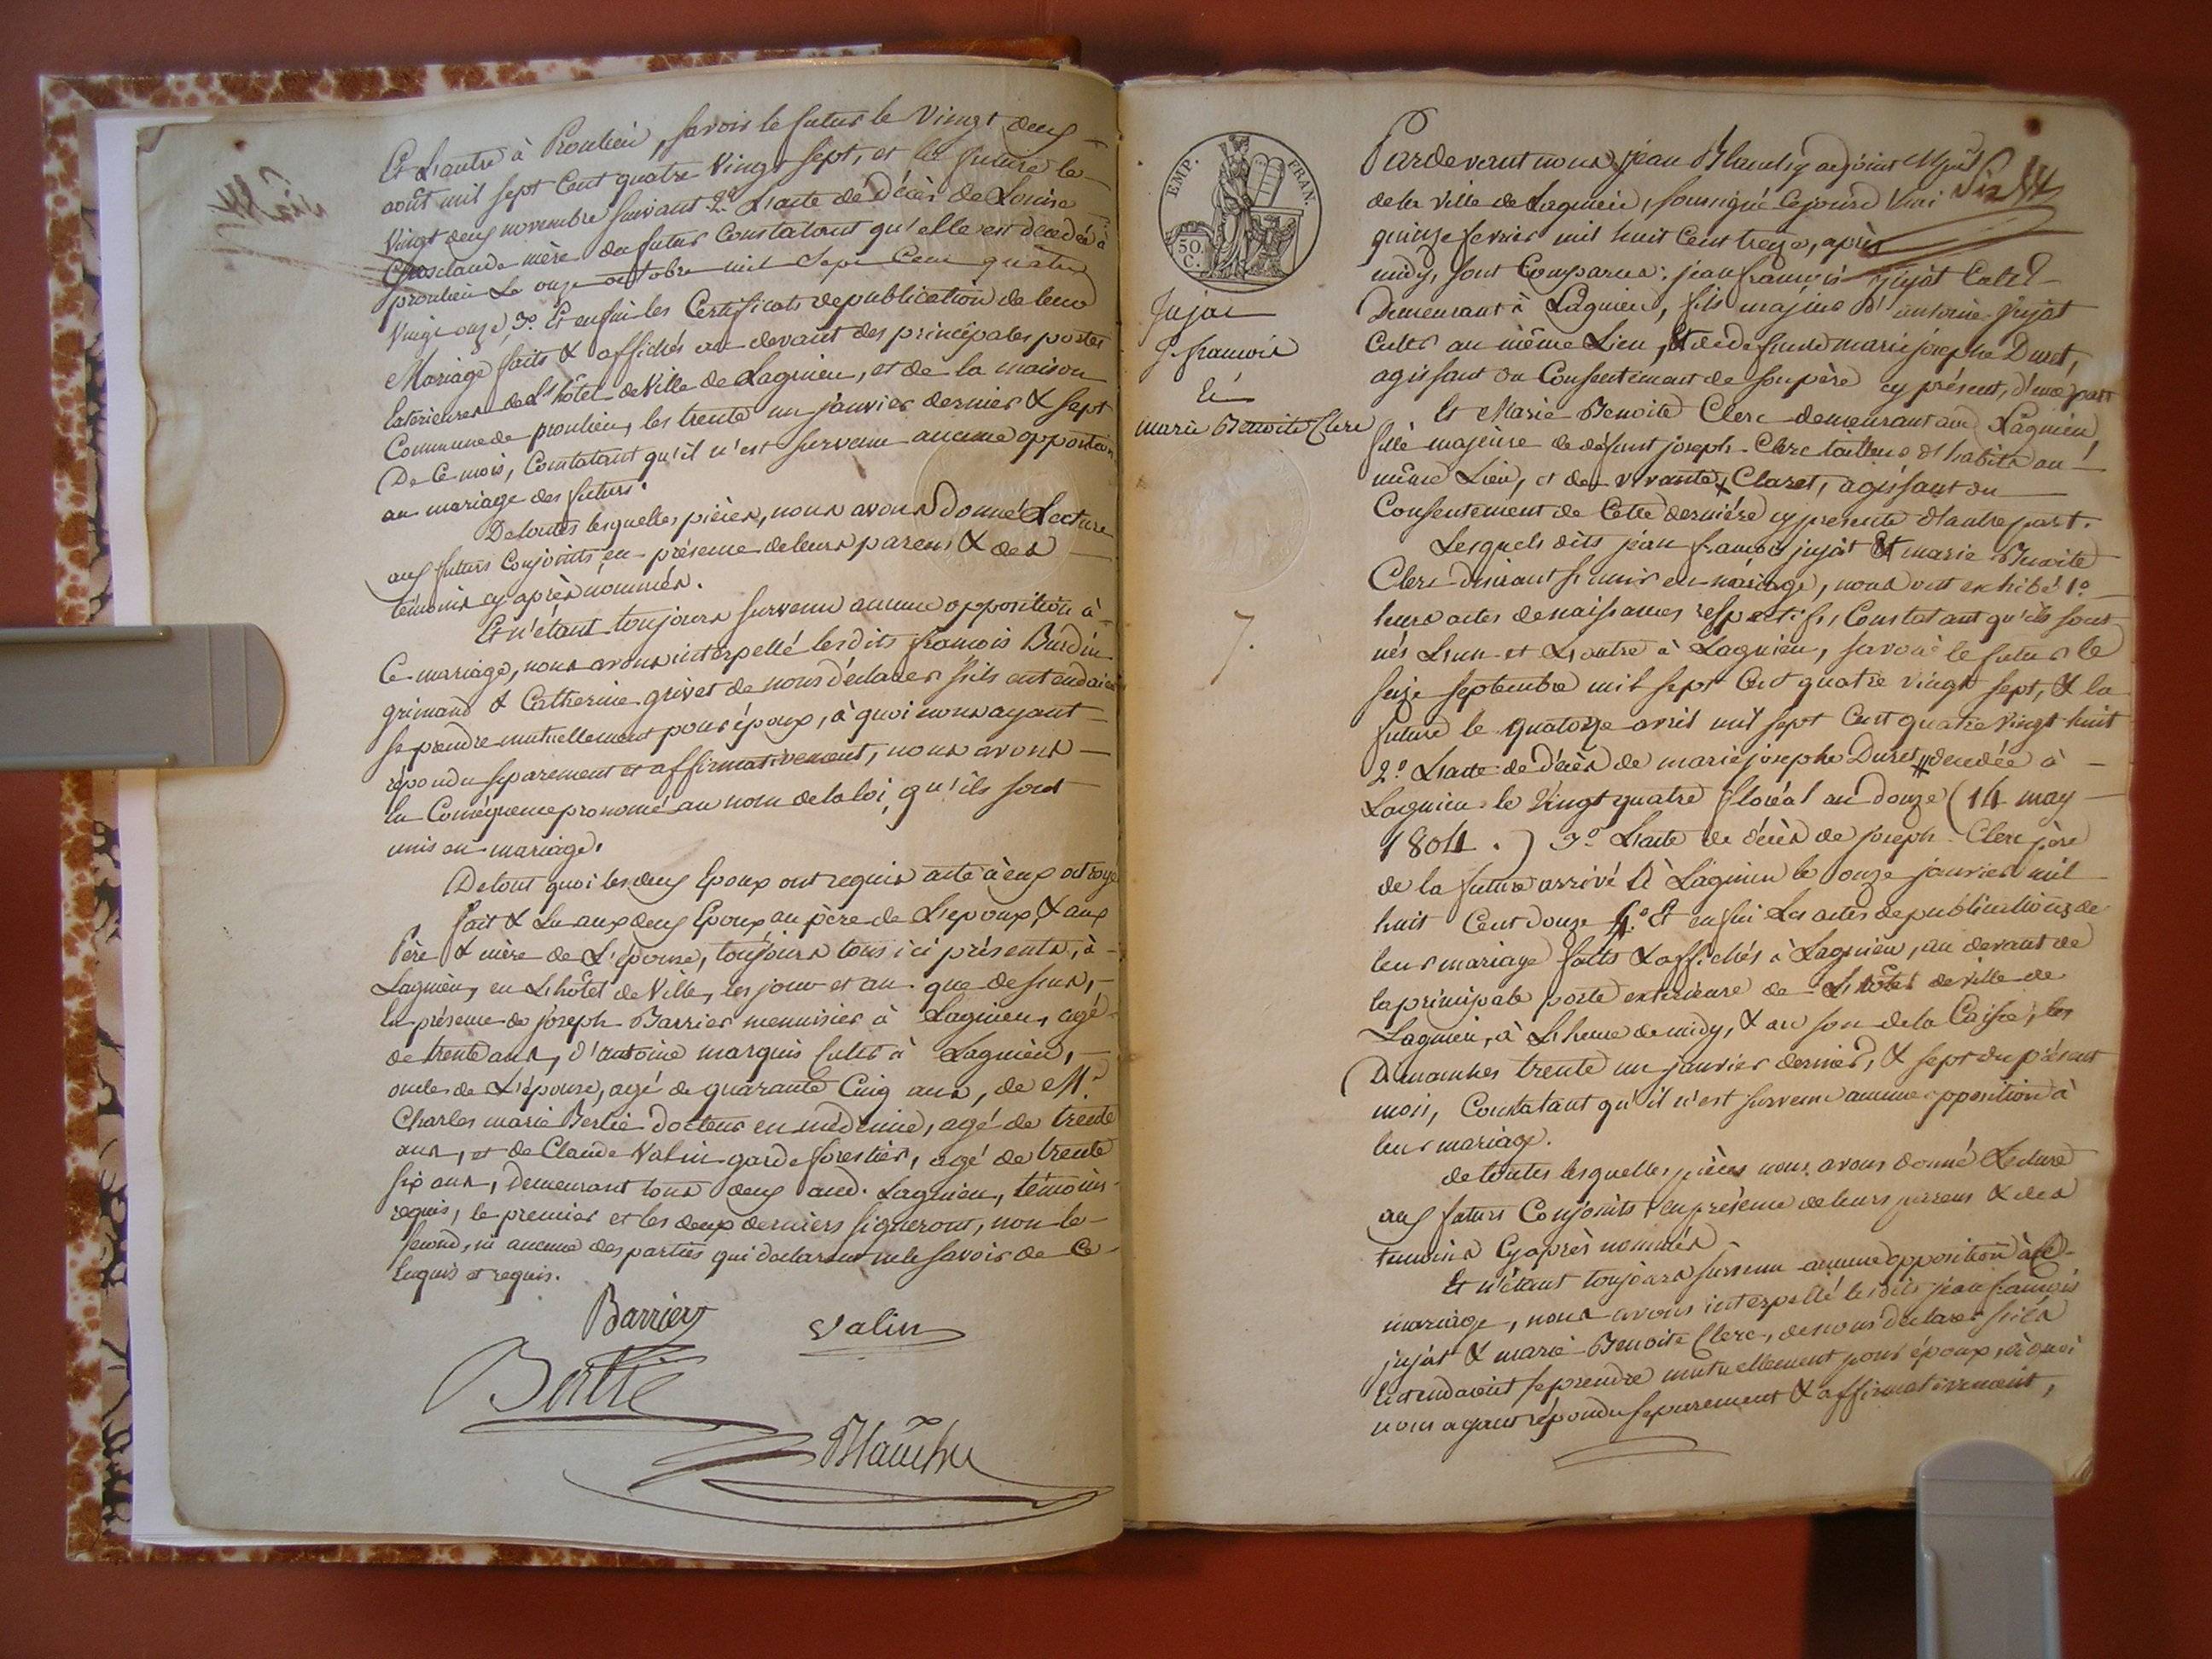 Et L'autre à Proulieu, savoir le futur le Vingt deux
août mil sept Cent quatre Vingt sept, et la future le
Vingt deux novembre suivant 2° L'acte de Décès de Louise
mère du futur Constatant qu'elle est décédée à
proulieu Le onze octobre mil Sept Cent quatre
Vingt onze, 3° Et enfin les Certificats de publication de leur
Mariage faits & affichés au devant des principales portes
Extérieures de L'hôtel de Ville de Lagnieu, et de la maison
Commune de proulieu, les trente un janvier dernier & sept
De Ce mois, Constatant qu'il n'est survenu aucune opposition
au mariage des futurs.
De toutes lesquelles pièces, nous avons Donné Lecture
aux futurs Conjoints, en présence de leurs parens & des
témoins cy après nommés.
Et n'étant toujours survenu aucune opposition à
Ce mariage, nous avons interpellé lesdits françois Burdin
grimand & Catherine grivet de nous déclarer s'ils entendaient
se prendre mutuellement pour époux, à quoi nous ayant
répondu séparement et affirmativement, nous avons
En Conséquence prononcé au nom de la loi, qu'ils sont
unis en mariage.
De tout quoi les deux Epoux ont requis acte à eux octroyé
fait & Lu aux deux Epoux, au père de L'epoux, & aux
Père & mère de L'épouse, toujours tous ici présents, à
Lagnieu, en L'hôtel de Ville, les jour et an que dessus,
En présence de joseph Barrier menuisier à Lagnieu, agé
de trente ans, d'antoine marquis Cultr à Lagnieu,
oncle de L'épouse, agé de quarante Cinq ans, de Mr
Charles marie Bertié docteur en médecine, agé de trente
ans, et de Claude Valin garde forestier, agé de trente
six ans, Demeurant tous deux aud. Lagnieu, témoins
requis, le premier et les deux derniers signeront, non le
second, ni aucune des parties qui declarent ne le savoir de Ce
Enquis et requis.
Barrier Valin
Bertié
Blanchy
EMP. FRAN.
50 C.
Jujat
J. francois
Et
marie Benoite Clerc
7.
Pardevant nous jean Blanchy adjoint
de la Ville de Lagnieu, soussigné Cejourd'hui
quinze fevrier mil huit Cent treize, après
midy, sont Comparus: jean françois jujat Cultr
Demeurant à Lagnieu, fils majeur d'antoine jujat
Cultr au même Lieu, & de defunte marie josephe Duret,
agissant du Consentement de son père cy présent, d'une part
Et Marie Benoite Clerc demeurant aud Lagnieu,
fille majeure de défunt joseph Clerc tailleur d'habits au
même Lieu, et de vivante Claret, agissant du
Consentement de Cette dernière cy presente d'autre part.
Lesquels dits jean françois jujat & marie Benoite
Clerc désirant s'unir en mariage, nous ont exhibé 1°
leurs actes de naissances respectifs, Constatant qu'ils sont
nés L'un et L'autre à Lagnieu, savoir le futur le
seize septembre mil sept Cent quatre vingt sept, & la
future le quatorze avril mil sept Cent quatre Vingt huit
2° L'acte de décès de marie josephe Duret décedée à
Lagnieu le Vingt quatre floréal an douze (14 may
1804.) 3° L'acte de décès de joseph Clerc père
de la future arrivé à Lagnieu le onze janvier mil
huit Cent douze 4° Et enfin Les actes de publications de
leur mariage faits & affichés à Lagnieu, au devant de
la principale porte extérieure de L'hôtel de ville de
Lagnieu, à L'heure de midy, & au son de la Caisse, les
Dimanches trente un janvier dernier, & sept du présent
mois, Constatant qu'il n'est survenu aucune opposition à
leur mariage.
de toutes lesquelles pièces nous avons donné Lecture
aux futurs Conjoints en présence de leurs parens & des
temoins Cy après nommés.
Et n'étant toujours survenu aucune opposition à Ce
mariage, nous avons interpellé lesdits jean françois
jujat & marie Benoite Clerc, de nous déclarer s'ils
Entendaient se prendre mutuellement pour époux, à quoi
nous ayant répondu séparement & affirmativement,